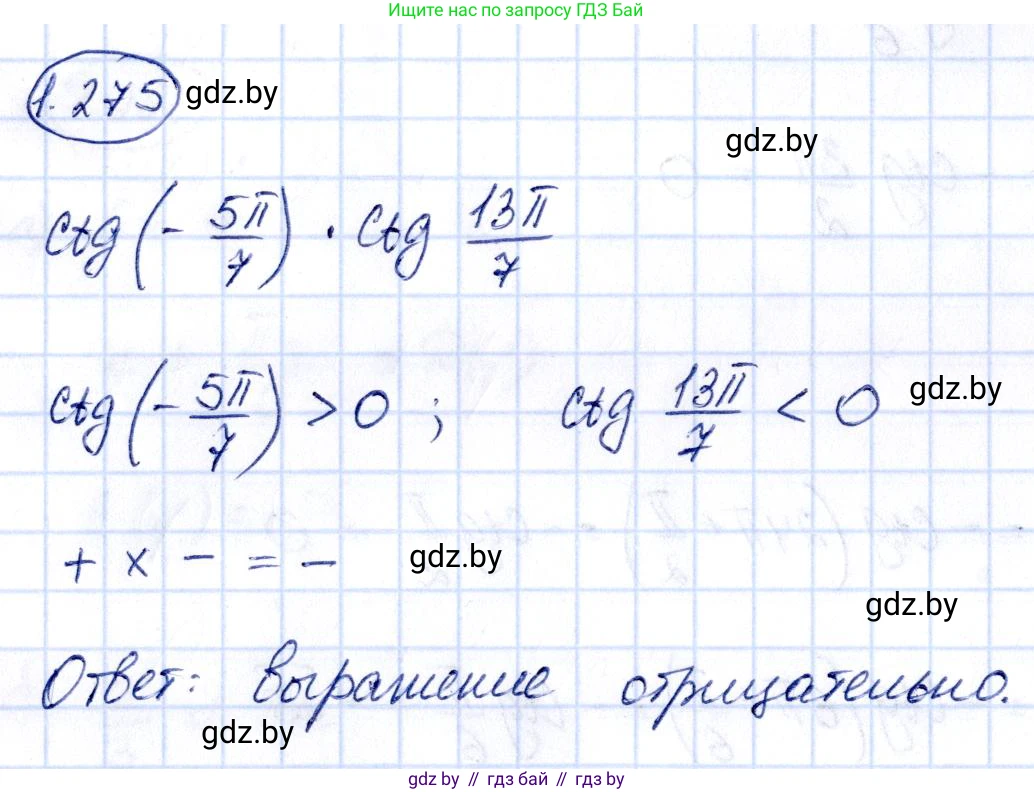 Ищите нас по запросу ГДЗ Бай
1.275 gdz.by
gdz.by
ctg(-5π/7) · ctg 13π/7
ctg(-5π/7) > 0 ; ctg 13π/7 < 0 gdz.by
+ × - = - gdz.by
gdz.by
Ответ: выражение отрицательно.
gdz.by
gdz.by // гдз бай // гдз by